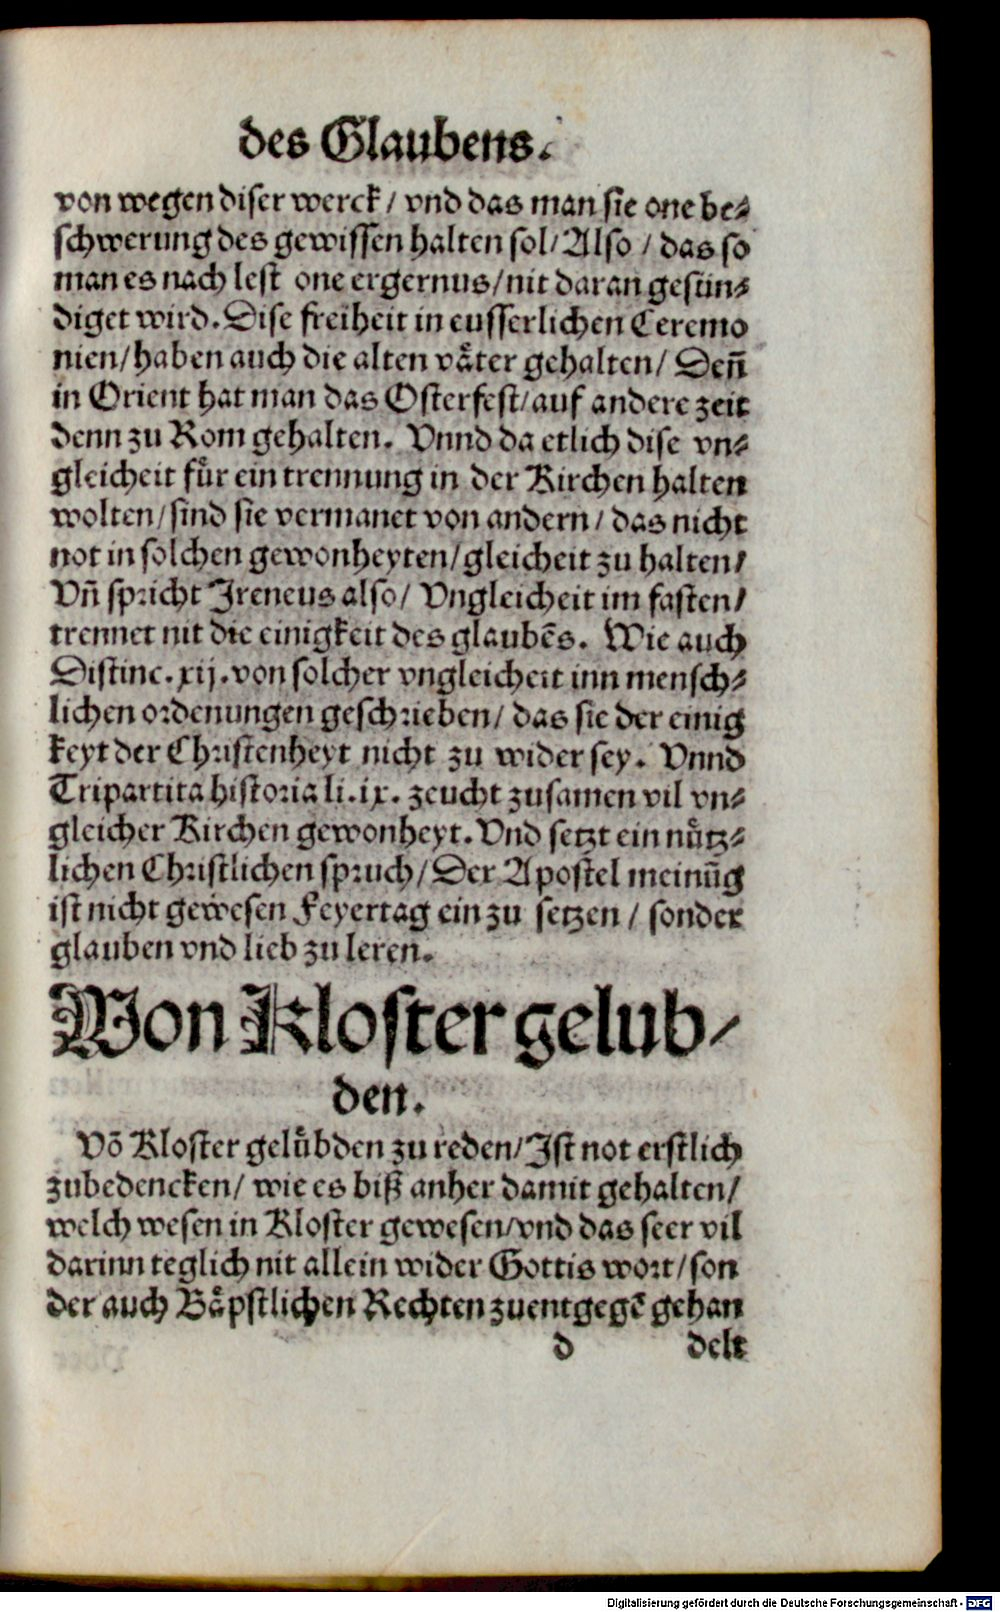 des Glaubens.
von wegen diser werck / vnd das man sie one be⸗
schwerung des gewissen halten sol / Also / das so
man es nach lest one ergernus / nit daran gesün⸗
diget wird. Dise freiheit in eusserlichen Ceremo
nien / haben auch die alten vaͤter gehalten / Den̄
in Orient hat man das Osterfest / auf andere zeit
denn zu Rom gehalten. Vnnd da etlich dise vn⸗
gleicheit fuͤr ein trennung in der Kirchen halten
wolten / sind sie vermanet von andern / das nicht
not in solchen gewonheyten / gleicheit zu halten /
Vn̄ spricht Jreneus also / Vngleicheit im fasten /
trennet nit die einigkeit des glaubēs. Wie auch
Distinc. xij. von solcher vngleicheit inn mensch⸗
lichen ordenungen geschrieben / das sie der einig
keyt der Christenheyt nicht zu wider sey. Vnnd
Tripartita historia li. ix. zeucht zusamen vil vn⸗
gleicher Kirchen gewonheyt. Vnd setzt ein nuͤtz⸗
lichen Christlichen spruch / Der Apostel meinūg
ist nicht gewesen Feyertag ein zu setzen / sonder
glauben vnd lieb zu leren.
Von Kloster gelub⸗
den.
Vō Kloster geluͤbden zu reden / Jst not erstlich
zubedencken / wie es biß anher damit gehalten /
welch wesen in Kloster gewesen / vnd das seer vil
darinn teglich nit allein wider Gottis wort / son
der auch Baͤpstlichen Rechten zuentgegē gehan
d delt
Digitalisierung gefördert durch die Deutsche Forschungsgemeinschaft - DFG